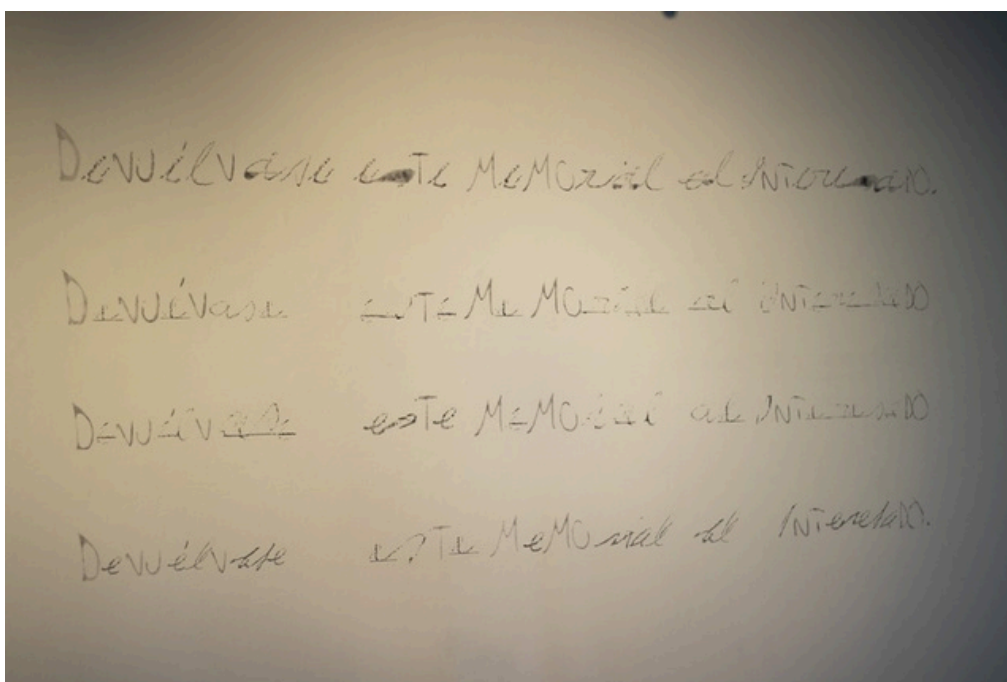 Devuélvase este MeMOrial al InteresaDO.
Devuévase este MeMOrial al InteresaDO
Devuélvase este MeMOrial al InteresaDO
Devuélvase este MeMOrial al InteresaDO.